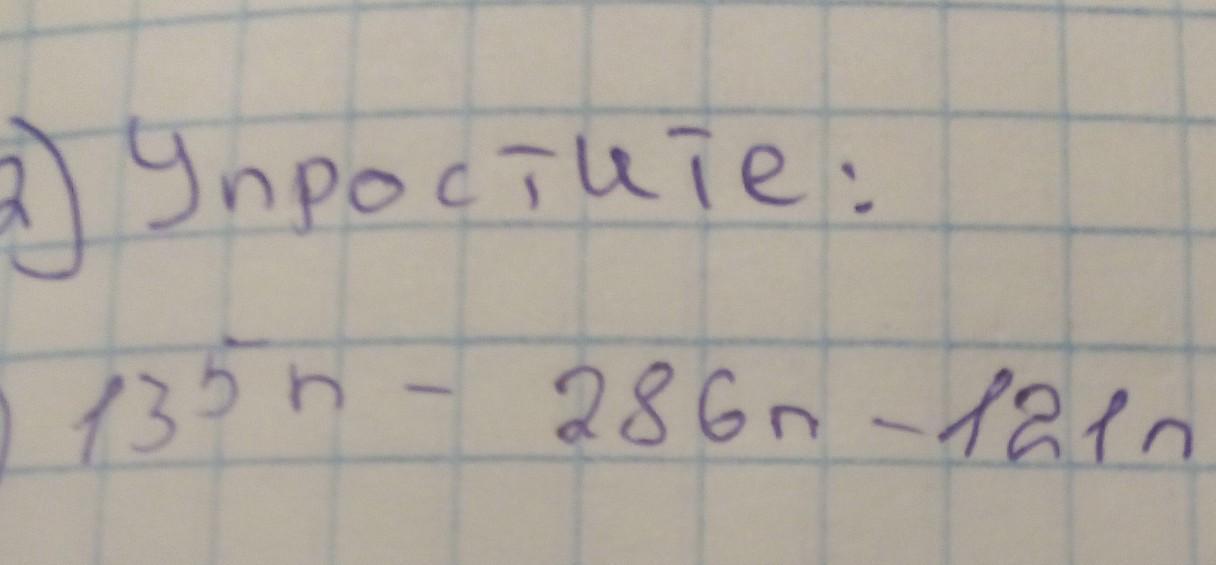 2) Упростите:
) 135n - 286n - 121n